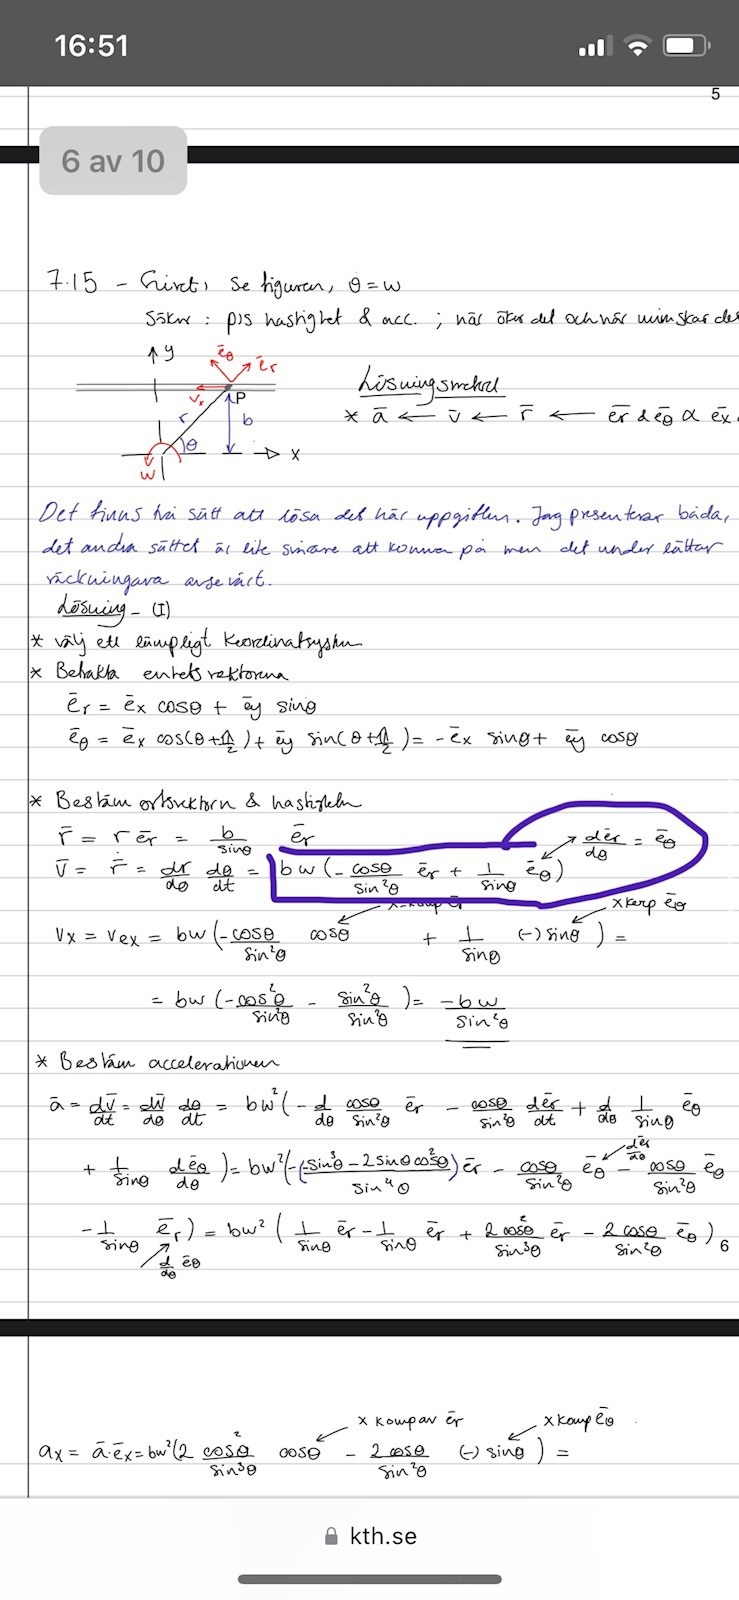 16:51
5
6 av 10
7.15 - Givet: Se figuren, θ = w
Söker: p:s hastighet & acc. ; när ökar det och när minskar de
y
ēθ
ēr
vx
P
r
b
θ
x
w
Lösningsmetod
* ā ← v̄ ← r̄ ← ēr & ēθ ∝ ēx
Det finns två sätt att lösa det här uppgiften. Jag presenterar båda,
det andra sättet är lite svårare att komma på men det underlättar
räckningarna avsevärt.
Lösning - (I)
* välj ett lämpligt koordinatsystem
* Betrakta enhetsvektorerna
ēr = ēx cosθ + ēy sinθ
ēθ = ēx cos(θ+π/2) + ēy sin(θ+π/2) = -ēx sinθ + ēy cosθ
* Bestäm ortsvektorn & hastigheten
r̄ = r ēr = b/sinθ ēr
dēr/dθ = ēθ
v̄ = ṙ̄ = dr̄/dθ dθ/dt = bw(-cosθ/sin²θ ēr + 1/sinθ ēθ)
x-komp ēr
x komp ēθ
vx = v̄ēx = bw(-cosθ/sin²θ cosθ + 1/sinθ (-) sinθ) =
= bw(-cos²θ/sin²θ - sin²θ/sin²θ) = -bw/sin²θ
* Bestäm accelerationen
ā = dv̄/dt = dv̄/dθ dθ/dt = bw²(-d/dθ cosθ/sin²θ ēr - cosθ/sin²θ dēr/dt + d/dθ 1/sinθ ēθ
+ 1/sinθ dēθ/dθ) = bw²(-(-sin³θ - 2sinθcos²θ)/sin⁴θ ēr - cosθ/sin²θ ēθ - cosθ/sin²θ ēθ
dēr/dθ
- 1/sinθ ēr) = bw²(1/sinθ ēr - 1/sinθ ēr + 2cos²θ/sin³θ ēr - 2cosθ/sin²θ ēθ)
d/dθ ēθ
6
x komp av ēr
x komp ēθ
ax = ā·ēx = bw²(2 cos²θ/sin³θ cosθ - 2cosθ/sin²θ (-) sinθ) =
kth.se